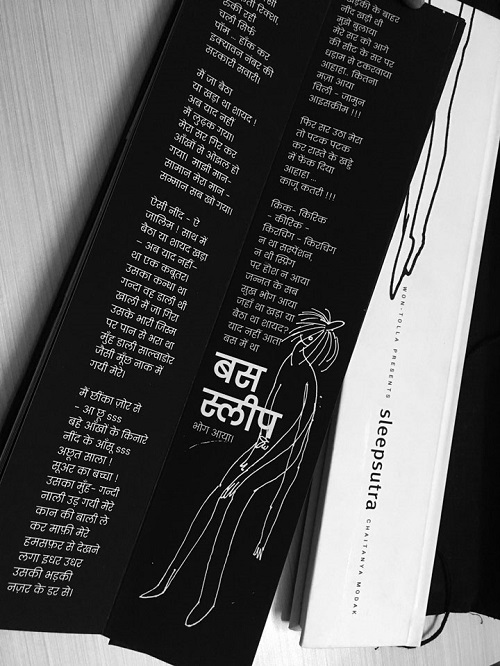 रुकी रही
चली सिर्फ
पॉम - हॉक कर
डक्पावन नंबर की
सरकारी सवारी।
मैं जा बैठा
या खड़ा था शायद !
अब याद नहीं
मैं लुढ़क गया।
मेरा सर गिर कर
आँखों से ओझल हो
गया। माझी मान-
सामान मेरा मान -
सम्मान सब खो गया।
ऐसी नींद - ऐ
जालिम ! साथ में
बैठा या शायद खड़ा
- अब याद नहीं-
था एक कबूतर।
उसका कन्धा था
गन्दा वह डाली थी
खाली मैं जा गिरा
उसके भारी जिस्म
पर पान से भरा था
मुँह डाली साल्वाडोर
जैसी मूँछ नाक में
गयी मेरे।
मैं छींका ज़ोर से
- आ छू sss
बहे आँखों के किनारे
नींद के आँसू sss
अछूत साला !
सूअर का बच्चा !
उसका मुँह- गन्दी
नाली उड़ गयी मेरे
कान की बाली ले
कर माफ़ी मेरे
हमसफ़र से देखने
लगा इधर उधर
उसकी भड़की
नज़र के डर से।
खिड़की के बाहर
नींद खड़ी थी
मुझे बुलाया
मेरे सर को आगे
की सीट के सर पर
धड़ाम से टकरवाया
आहाहा.. कितना
मज़ा आया
चिली - जामुन
आइसकीम !!!
फिर सर उठा मेरा
तो पटक पटक
कर रास्ते के खड्डे
में फेंक दिया
आहाहा ...
काजू कतरी !!!
किक- किरिक
- कीरिक -
किरचिंग - किरचिंग
न था सस्पेंशन,
न थी स्प्रिंग
पर होश न आया
जन्नत के सब
सुख भोग आया
जहाँ था खड़ा या
बैठा था शायद?
याद नहीं आता
बस में था
बस
स्लीप
भोग आया।
HON-TOLLA PRESENTS sleepsutra CHAITANYA MODAK